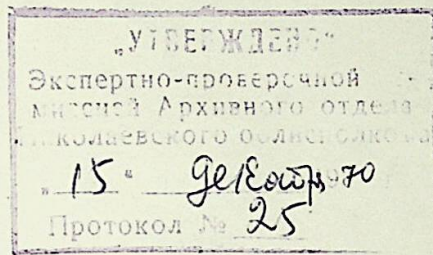 „УТВЕРЖДЕНО“
Экспертно-проверочной
миссией Архивного отдела
Николаевского облисполкома
„ 15 “ декабря 1970
Протокол № 25